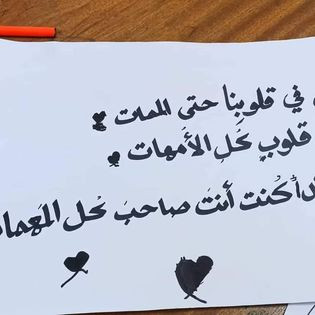 في قلوبنا حتى الممات
قلوبٍ كَلِ الأمهات
كُنت أنتَ صاحبَ كُل المَهما